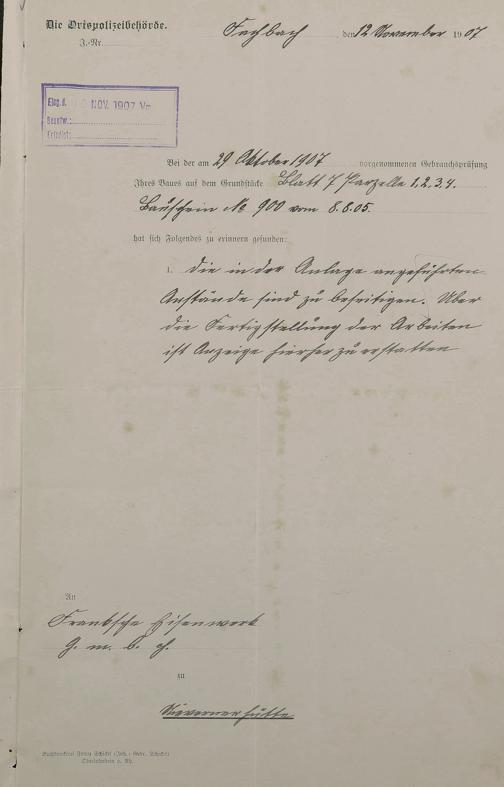 Die Ortspolizeibehörde.
J.-Nr.
Fachbach, den 12 November 1907
Eing. d. NOV. 1907 Vm
Beantw.:
Erledigt:
Bei der am 29 Oktober 1907 vorgenommenen Gebrauchsprüfung
Ihres Baues auf dem Grundstücke Blatt 7 Parzelle 1, 2, 3, 4.
Bauschein No 900 vom 8.8.05.
hat sich Folgendes zu erinnern gefunden:
1. die in der Anlage angeführten
Anstände sind zu beseitigen. Über
die Fertigstellung der Arbeiten
ist Anzeige hierher zu erstatten
An
Franksche Eisenwerk
G. m. b. H.
zu
Nievernerhütte
Buchdruckerei Franz Schickel (Inh.: Gebr. Schickel)
Oberlahnstein a. Rh.